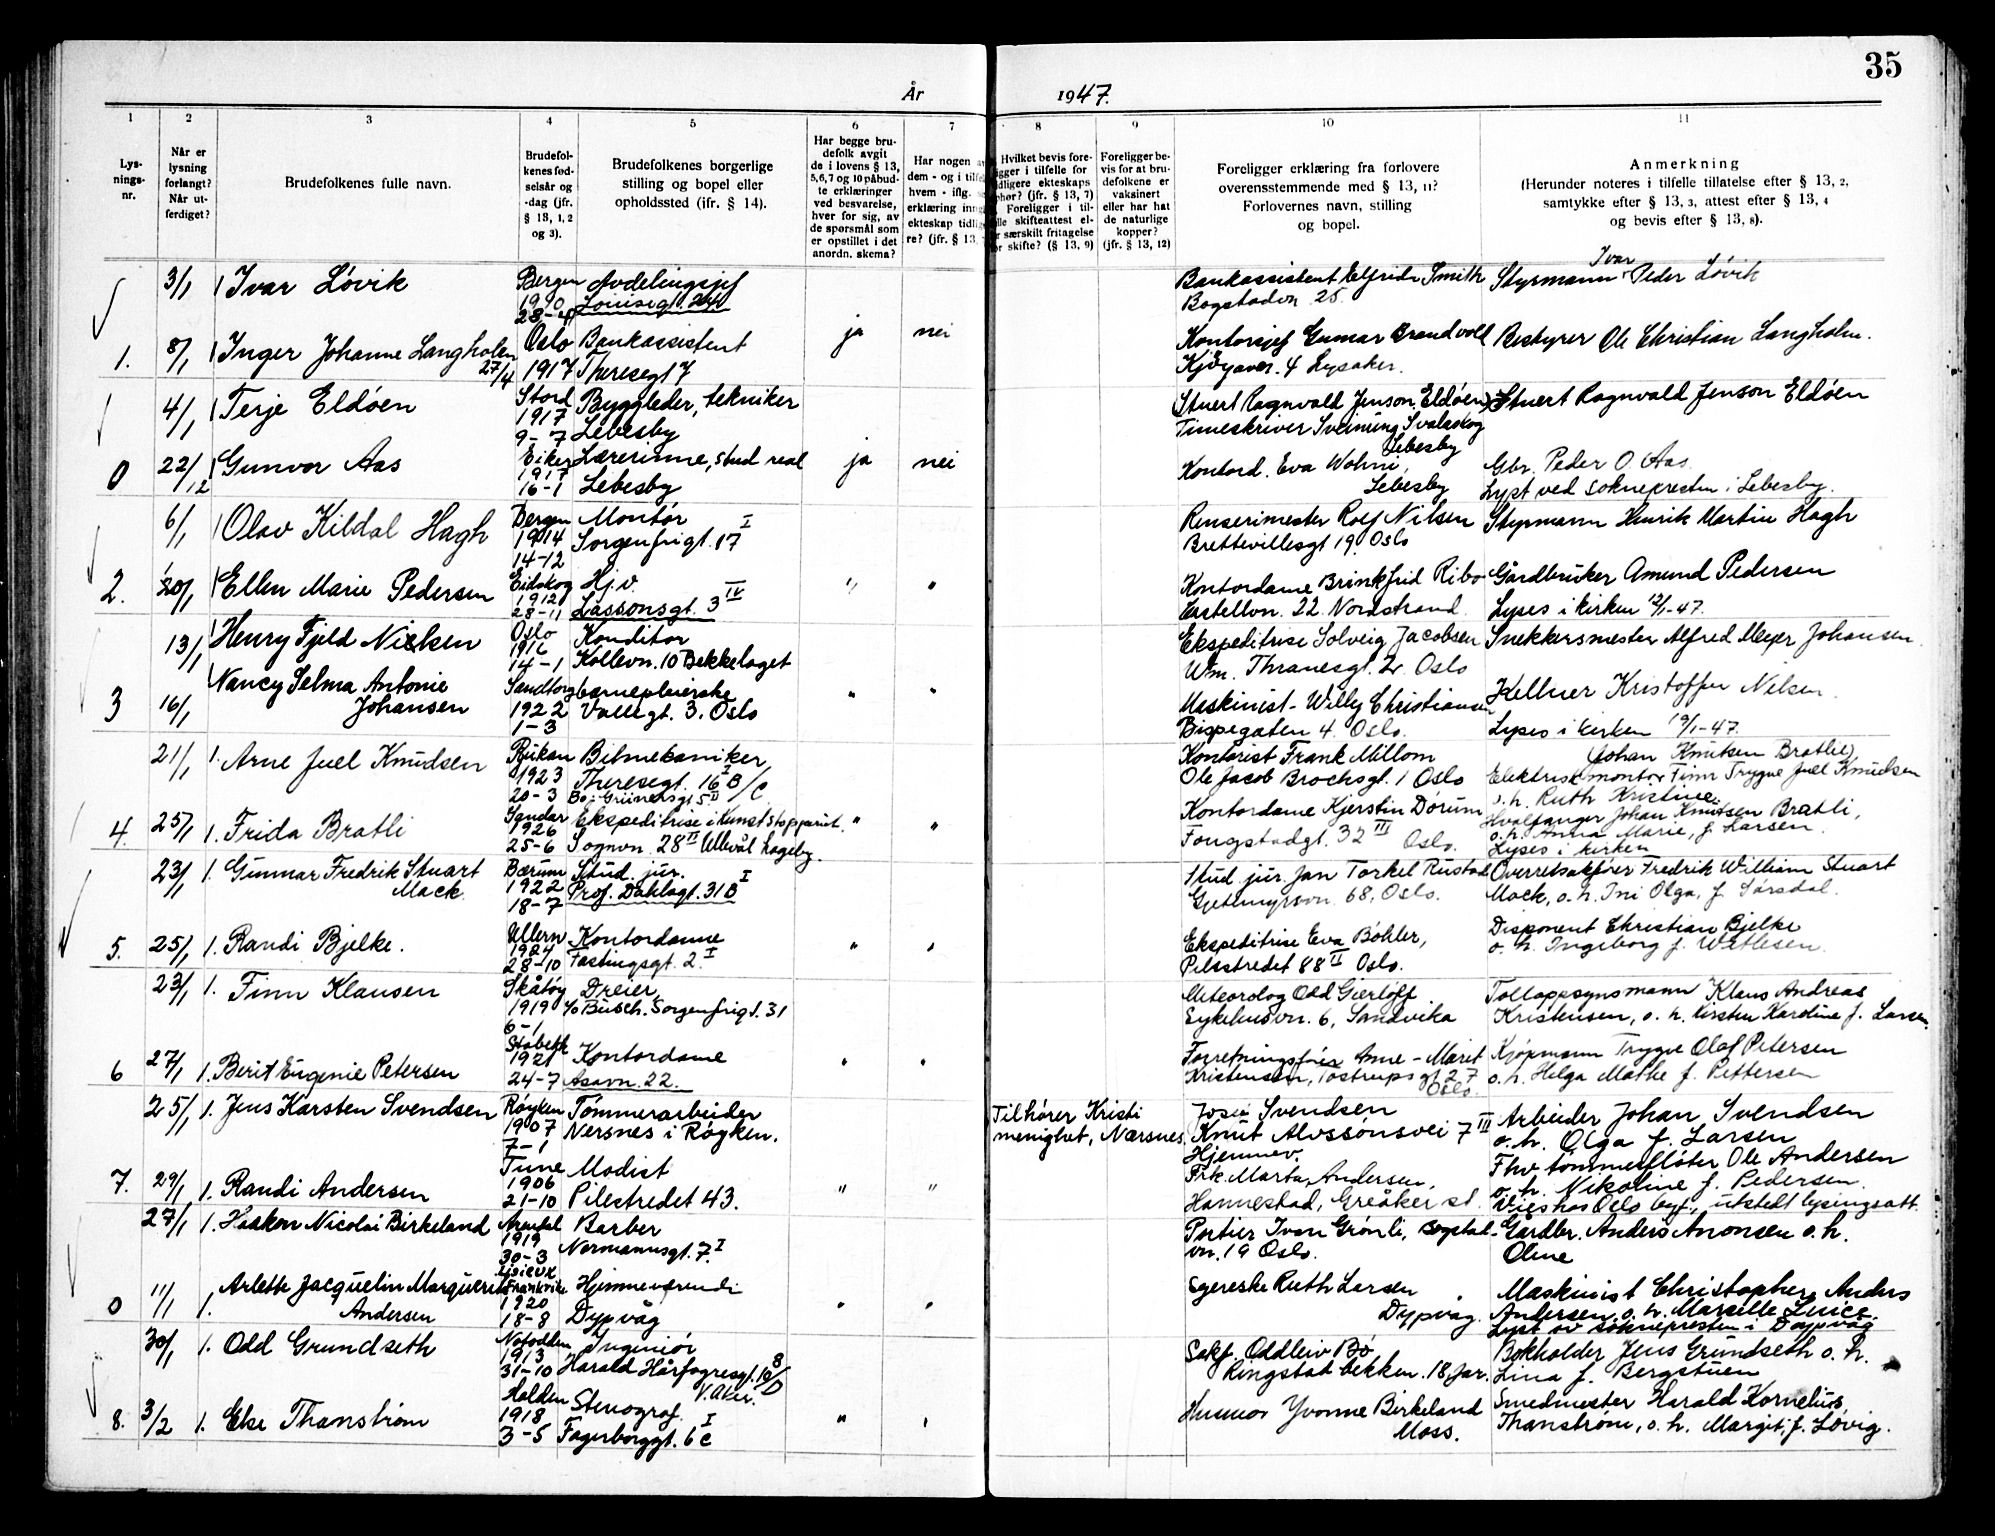 35
År 1947.
1 2 3 4 5 6 7 8 9 10 11
Lys-
nings-
nr.
Når er
lysning
forlangt?
Når ut-
ferdiget?
Brudefolkenes fulle navn.
Brudefol-
kenes fød-
selsår og
-dag (jfr.
§ 18, 1, 2
og 3).
Brudefolkenes borgerlige
stilling og bopel eller
opholdssted (ifr. § 14).
Har begge bru-
defolk avgit
de i lovens § 13,
5,6,7 og 10 påbud-
te erklæringer
ved besvarelse,
hver for sig, av
de spørsmål som
er opstillet i det
anordn. skema?
Har nogen av
dem - og i tilfelle
hvem - iflg.
erklæring inng
ekteskap tidlige-
re? (jfr. § 13,
Hvilket bevis fore-
ligger i tilfelle for
tidligere ekteskaps
ophør? (jfr. § 13, 7)
Foreligger i til-
felle skifteattest el-
ler særskilt fritagelse
for skifte? (§ 13, 9)
Foreligger be-
vis for at bru-
defolkene er
vaksinert
eller har hat
de naturlige
kopper?
(jfr. § 13, 12)
Foreligger erklæring fra forlovere
overensstemmende med § 13, 11?
Forlovernes navn, stilling
og bopel.
Anmerkning
(Herunder noteres i tilfelle tillatelse efter § 13, 2,
samtykke efter § 13, 3, attest efter § 13, 4
og bevis efter § 13, 8).
3/1 Ivar Løvik
Bergen 1910 28-4
Avdelingsjef
Louisegt. 24
Bankassistent Elfrida Smith
Bogstadvn 25.
Ivar
Styrmann Peder Løvik
1. 8/1 Inger Johanne Langholm 27/4
Oslo 1917
Bankassistent
Theresegt 7
ja nei
Kontorsjef Gunnar Brandvold
4 Lysaker.
Bestyrer Ole Christian Langholm.
4/1 Terje Eldøen
Stord 1917 9-7
Byggleder, tekniker
Lebesby
(Stuert Ragnvald Jenson Eldøen)
Timeskriver Sveinung Svalaskog
Lebesby
Stuert Ragnvald Jenson Eldøen
0 22/12 Gunvor Aas
Eiker 1917 16-1
Lærerinne, stud real
Lebesby
ja nei
Kontord. Eva Wohni,
Lebesby
Gbr. Peder O. Aas.
Lyst ved sokneprestin i Lebesby.
6/1 Olav Kildal Hagh
Bergen 1914 14-12
Montør
Sorgenfrigt. 17 I
Renserimester Rolf Nilsen
Brettevillesgt 19. Oslo
Styrmann Henrik Martin Hagh
2. 20/1 Ellen Marie Pedersen
Eidskog 1912 28-11
Hj.v.
Lassonsgt. 3 IV
" "
Kontordame Brinkfrid Ribo
22 Nordstrand.
Gårdbruker Amund Pedersen
Lyses i kirken 12/1-47.
13/1 Henry Fjeld Nielsen
Oslo 1916 14-1
Konditor
Kollevn. 10 Bekkelaget
Ekspeditrise Solveig Jacobsen
Wm. Thranesgt. 2r Oslo
Snekkersmester Alfred Meyer Johansen.
3 16/1 Nancy Selma Antonie
Johansen
Sandtorg 1922 1-3
barnepleierske
Vallegt. 3. Oslo
" "
Maskinist - Willy Christiansen
Bispegaten 4. Oslo.
Kellner Kristoffer Nilsen.
Lyses i kirken 19/1-47.
21/1 1. Arne Juel Knudsen
Rjukan 1923 20-3
Bilmekaniker
Theresegt. 16 I B/C
Bo: Grünersgt 5 II
Kontorist Frank Millom
Ole Jacob Brochsgt. 1 Oslo
(Johan Knutsen Bratlie)
Elektrisk montør Finn Trygve Juel Knudsen
o. h. Ruth Kristine.
4. 25/1 1. Frida Bratli
Sandar 1926 25-6
Ekspeditrise i Kunststopperiet.
Sognvn. 28 II Ullevål hageby.
" "
Kontordame Kjerstin Dørum
Fougstadgt. 32 III Oslo.
Hvalfanger Johan Knutsen Bratli,
o. h. Anna Marie, f. Larsen.
Lyses i kirken
23/1 1. Gunnar Fredrik Stuart
Mack.
Bærum 1922 18-7
Stud. jur.
Prof. Dahlsgt. 31 B I
Stud. jur. Jan Torkel Rustad
68, Oslo.
Overretsakfører Fredrik William Stuart
Mack, o. h. Ini Olga, f. Sørsdal.
5. 25/1 1. Randi Bjelke.
Ullern 1924 28-10
Kontordame
Fastingsgt. 2. I
" "
Ekspeditrise Eva Bøhler,
Pilestredet 88 II Oslo.
Disponent Christian Bjelke
o. h. Ingeborg f.
23/1 1. Finn Klausen
Skåtøy 1919 6-1
Dreier,
c/o Busch. Sorgenfrigt. 31
Meteorolog Odd Gjerløff
Eykelusvn. 6, Sandvika
Tolloppsynsmann Klaus Andreas
Kristensen, o. h. Kirsten Karoline f. Larsen.
6 27/1 1. Berit Eugenie Petersen
Stabekk 1921 24-7
Kontordame
Asavn. 22.
" "
Forretningsfører Anne-Marit
Kristensen, Tostrupsgt 27
Oslo.
Kjøpmann Trygve Olaf Petersen
o. h. Helga Mathe f. Pettersen
25/1 1. Jens Karsten Svendsen
Røyken 1907 7-1
Tømmerarbeider
Nersnes i Røyken.
Tilhører Kristi
menighet, Nærsnes.
Josei Svendsen
Knut Alvssonsvei 7 III
Hjemmev.
Arbeider Johan Svendsen
o. h. Olga f. Larsen
7. 29/1 1. Randi Andersen
Tune 1906 21-10
Modist
Pilestredet 43.
" "
Frk. Marta Andersen,
Hannestad, Greåker st.
Fhv tømmerfløter Ole Andersen
o. h. Nikoline f. Pedersen.
Vies hos Oslo byf., utstedt lysingsatt.
27/1 1. Haakon Nicolai Birkeland
Arendal 1919 30-3
Barber
Normannsgt. 7. I
Portier Ivar Grønli, Bogstad-
vn. 19 Oslo.
Gardbr. Anders Aronsen o. h.
Oline
0 11/1 1. Arlette Jacquelin Marguerite
Andersen
Lisieux Frankrike 1920 18-8
Hjemmeværende
Dypvåg
" "
Syerske Ruth Larsen
Dypvåg.
Maskinist Christopher Anders
Andersen o. h. Marcelle Luice.
Lyst av soknepresten i Dypvåg
30/1 1. Odd Grundseth
Notodden 1913 31-10
Ingeniør
Harald Hårfagresgt. 16 8/D
V. Aker.
Sakf. Oddleiv Bø
Ringstabekken. 18, Jar.
Bokholder Jens Grundseth o. h.
Lina f. Bergstuen
8. 3/2 1. Else Thanstrøm
Halden 1918 3-5
Stenograf.
Fagerborggt. 6c I
" "
Husmor Yvonne Birkeland
Moss.
Smedmester Harald Kornelius
Thanstrøm, o. h. Margit, f. Løvig.